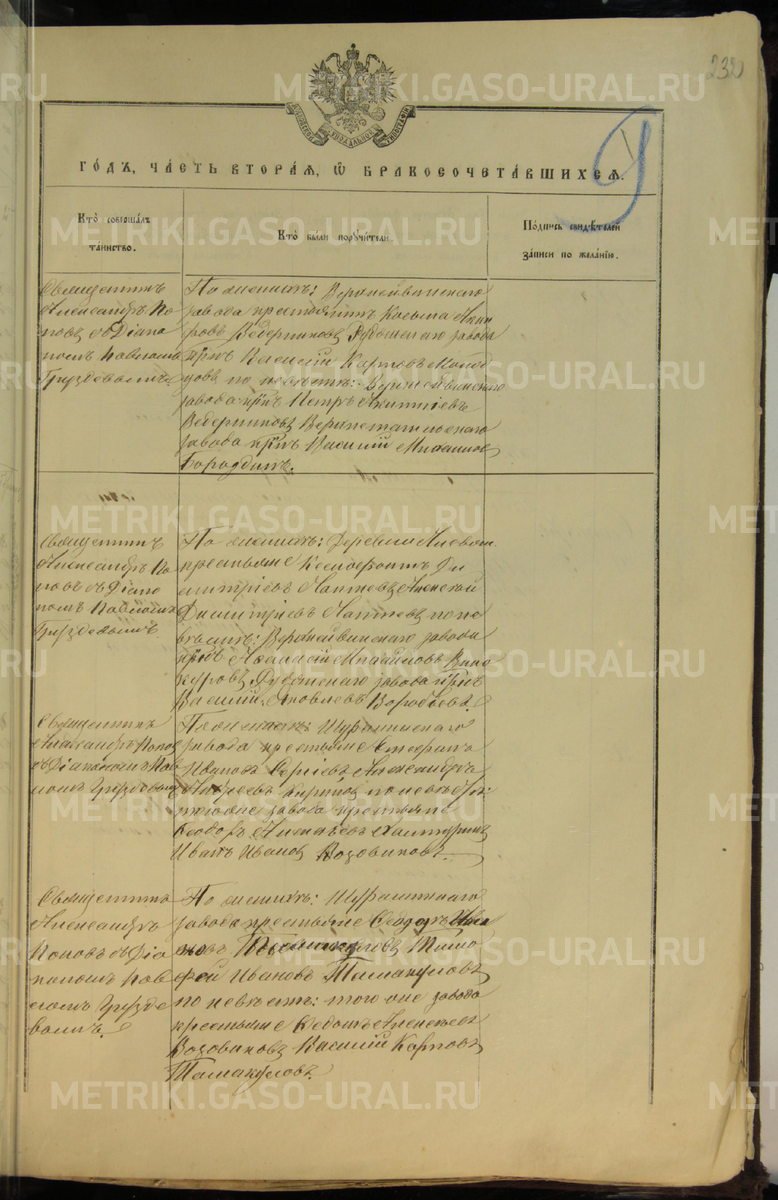 232
ГО́ДЪ, ЧА́СТЬ ВТОРА́Я, Ѿ БРАКОСОЧЕТА́ВШИХСЯ.
Кто̀ соверша́лъ
таинство.
Кто̀ бы́ли пору́чители.
По́дпись свидѣ́телей
за́писи по жела́нію.
Священникъ
Александръ По
повъ съ Діако
номъ Павломъ
Груздевымъ
По женихѣ: Верхнейвинскаго
завода крестьянинъ Косьма
Ведерниковъ завода
крнъ Василій Карповъ
по невѣстѣ: Верхнейвинскаго
завода крнъ Петръ
Ведерниковъ Верхнетагильскаго
завода крнъ Василій Михаиловъ
Бородинъ.
Священникъ
Александръ По
повъ съ Діако
номъ Павломъ
Груздевымъ
По женихѣ: Деревни
крестьяне Ксенофонтъ Ди
митріевъ Лаптевъ Алексѣй
Димитріевъ Лаптевъ по не
вѣстѣ: Верхнейвинскаго завода
Михаиловъ Вино
куровъ завода крнъ
Василій Яковлевъ Воробьевъ.
Священникъ
Александръ Попов
съ Діакономъ Пав
ломъ Груздевым
По женихѣ: Шуралинскаго
завода крестьяне Стефанъ
Ивановъ Сергіевъ Александръ
Андреевъ по невѣстѣ:
того же завода крестьяне
Ѳеодоръ Алексѣевъ
Иванъ Ивановъ Возовиковъ.
Священникъ
Александръ
Поповъ съ Діа
кономъ Пав
ломъ Грузде
вымъ.
По женихѣ: Шуралинскаго
завода крестьяне Ѳеодоръ
Тамакуловъ Тимо
фей Ивановъ Тамакуловъ
по невѣстѣ: того же завода
крестьяне Алексѣев
Возовиковъ Василій Карповъ
Тамакуловъ.
METRIKI.GASO-URAL.RU